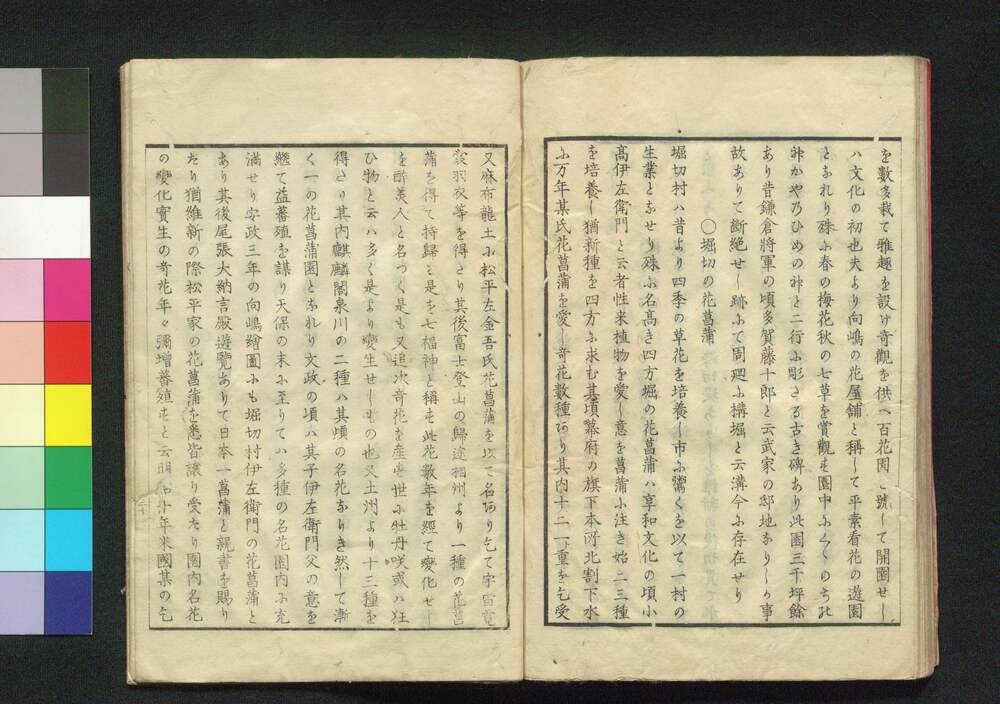 を數多栽て雅趣を設け奇觀を供へ百花園と號して開園せし
ハ文化の初也夫より向嶋の花屋舗と稱して平素看花の遊園
となれり殊ふ春の梅花秋の七草を賞觀す園中ふくくのち死
神かや乃ひめの神と二行ふ彫さる古き碑あり此園三千坪餘
あり昔鎌倉將軍の頃多賀藤十郎と云武家の邸地なりしり事
故ありて斷絶せし跡ふて周廻ふ搆堀と云溝今ふ存在せり
〇堀切の花菖蒲
堀切村ハ昔より四季の草花を培養し市ふ鬻くを以て一村の
生業となせり殊ふ名髙き四方堀の花菖蒲ハ享和文化の頃小
髙伊左衛門と云者性来植物を愛し意を菖蒲ふ注き始二三種
を培養し猶新種を四方ふ求む其頃幕府の旗下本所北割下水
ふ万年某氏花菖蒲を愛し奇花數種あり其内十二一重を乞受
又麻布龍土ふ松平左金吾氏花菖蒲を以て名あり乞て宇宙
羽衣等を得さり其後富士登山の歸途相州より一種の花菖
蒲を得て持歸る是を七福神と稱す此花数年を經て變化せし
を酔美人と名つく是も又追次奇花を産す世ふ牡丹咲或ハ狂
ひ物と云ハ多く是より變生せしもの也又土州より十三種を
得さり其内麒麟閣泉川の二種ハ其頃の名花なりき然して漸
く一の花菖蒲園となれり文政の頃ハ其子伊左衛門父の意を
繼て益蕃殖を謀り天保の末ふ至りてハ多種の名花園内ふ充
滿せり安政三年の向嶋繪圖ふも堀切村伊左衛門の花菖蒲と
あり其後尾張大納言殿遊覧ありて日本一菖蒲と親書を賜り
たり猶維新の際松平家の花菖蒲を悉皆讓り受たり園内名花
の變化實生の奇花年々彌增蕃殖すと云明 年米國某の乞